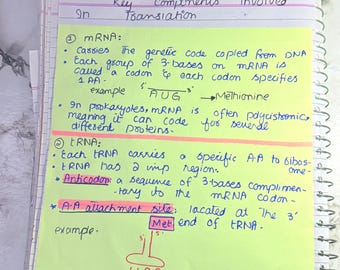 Key Components Involved
In Translation
① mRNA:
• Carries the genetic code copied from DNA
• Each group of 3-bases on mRNA is
called a codon & each codon specifies
1 AA.
example 5' AUG 3' → Methionine
• In prokaryotes, mRNA is often polycistronic,
meaning it can code for several
different proteins.
② tRNA:
• Each tRNA carries a specific A.A to ribos-
ome.
• tRNA has 2 imp region.
• Anticodon: a sequence of 3-bases complimen-
tary to the mRNA codon.
• A.A attachment site: located at the 3'
end of tRNA.
Met
example.
5'